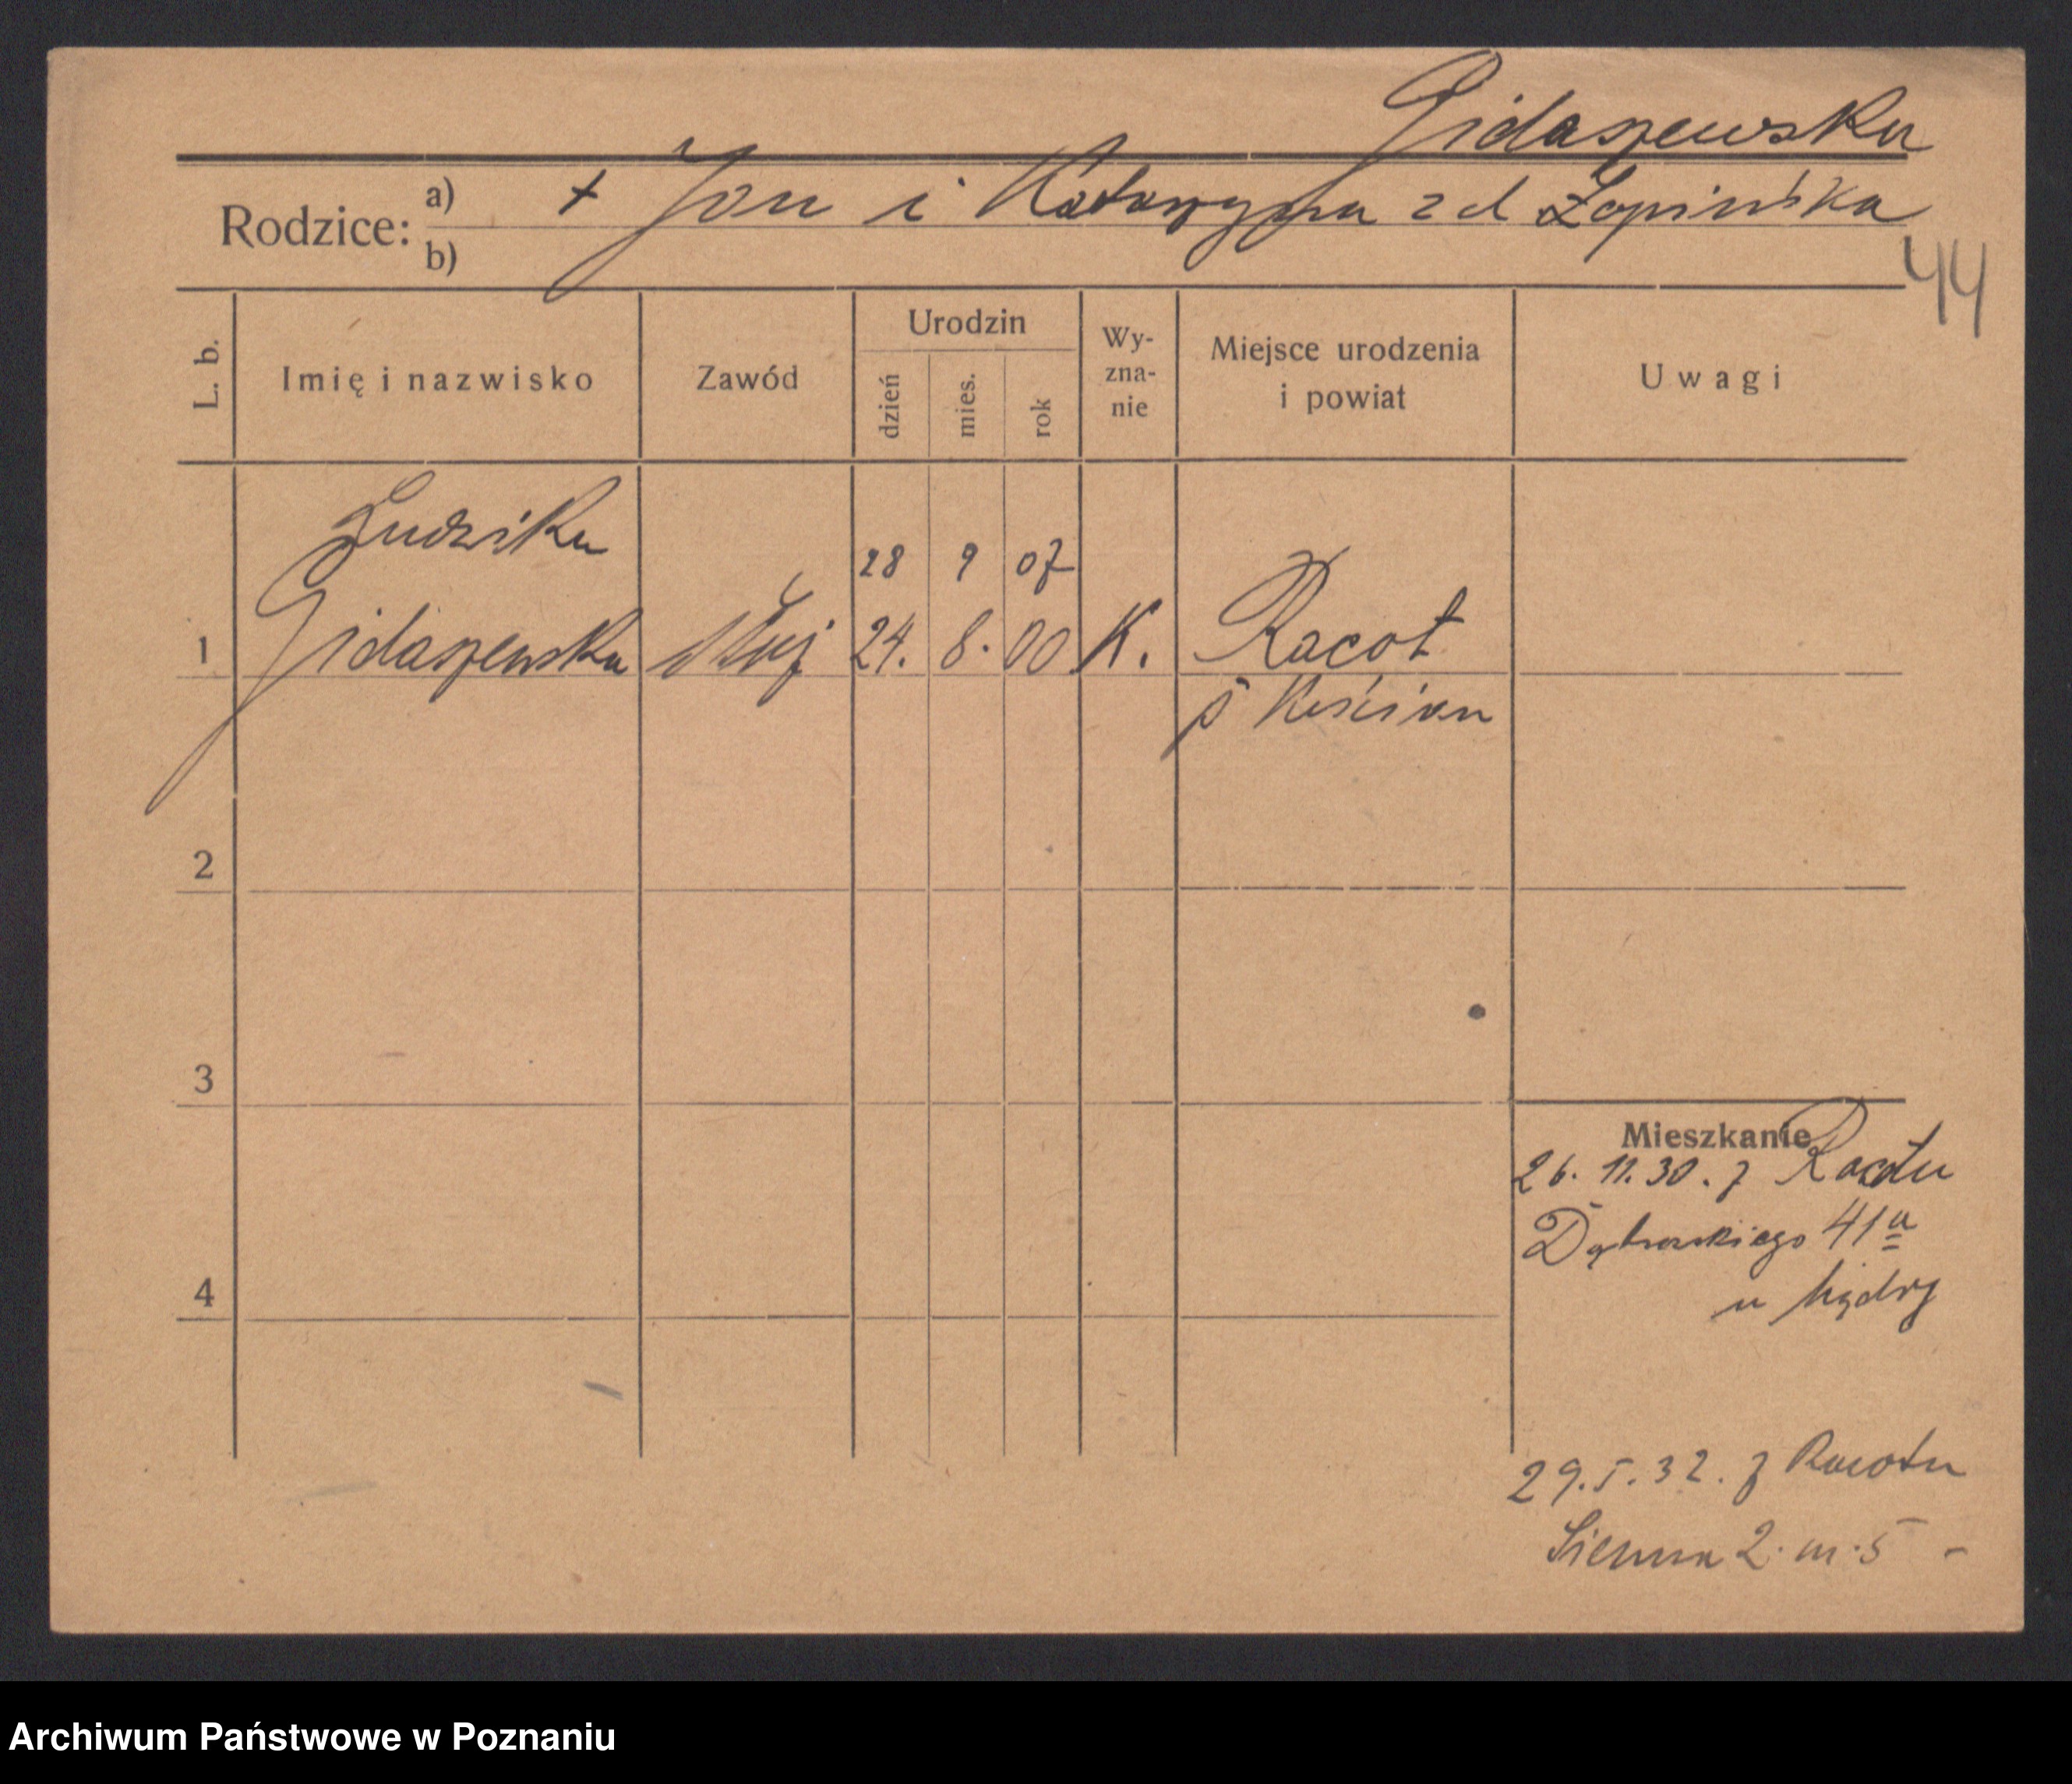 Gidaszewska
Rodzice: a) + Jan i Katarzyna z d Łopińska
b)
44
L. b.
Imię i nazwisko
Zawód
Urodzin
dzień
mies.
rok
Wy-
zna-
nie
Miejsce urodzenia
i powiat
Uwagi
Ludwika
28 9 07
1 Gidaszewska służ 24. 8. 00 K. Racot
p Kościan
2
3
4
Mieszkanie
26. 11. 30. z Racotu
Dąbrowskiego 41a
u
29. 5. 32. z Racotu
Sienna 2 m. 5 -
Archiwum Państwowe w Poznaniu